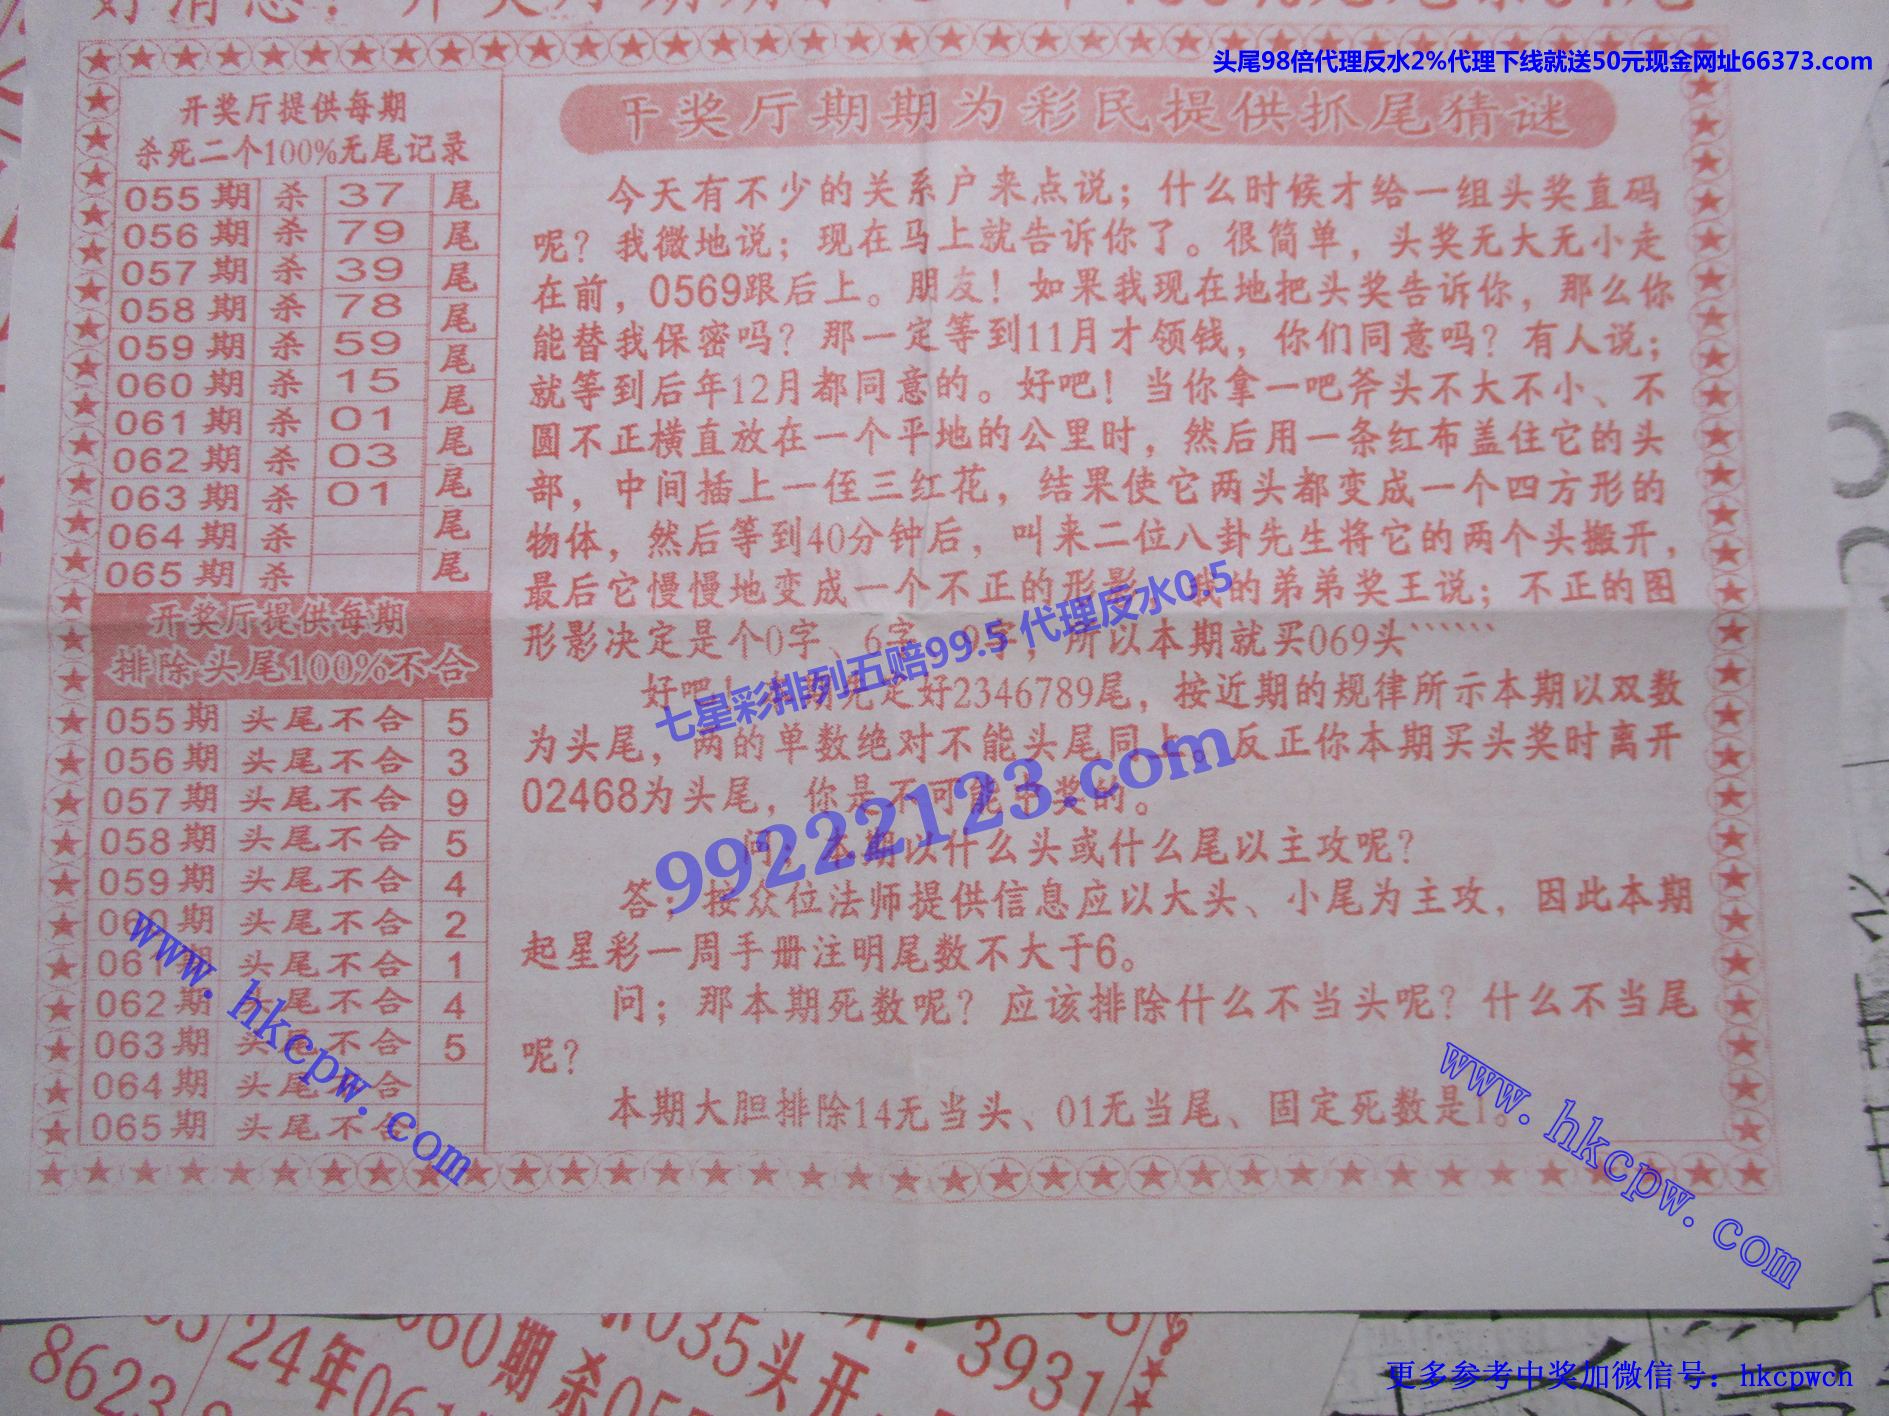 头尾98倍代理反水2%代理下线就送50元现金网址66373.com
开奖厅提供每期
杀死二个100%无尾记录
055期 杀 37 尾
056期 杀 79 尾
057期 杀 39 尾
058期 杀 78 尾
059期 杀 59 尾
060期 杀 15 尾
061期 杀 01 尾
062期 杀 03 尾
063期 杀 01 尾
064期 杀 尾
065期 杀 尾
开奖厅提供每期
排除头尾100%不合
055期 头尾不合 5
056期 头尾不合 3
057期 头尾不合 9
058期 头尾不合 5
059期 头尾不合 4
060期 头尾不合 2
061期 头尾不合 1
062期 头尾不合 4
063期 头尾不合 5
064期 头尾不合
065期 头尾不合
奖厅期期为彩民提供抓尾猜谜
今天有不少的关系户来点说；什么时候才给一组头奖直码
呢？我微地说；现在马上就告诉你了。很简单，头奖无大无小走
在前，0569跟后上。朋友！如果我现在地把头奖告诉你，那么你
能替我保密吗？那一定等到11月才领钱，你们同意吗？有人说；
就等到后年12月都同意的。好吧！当你拿一吧斧头不大不小、不
圆不正横直放在一个平地的公里时，然后用一条红布盖住它的头
部，中间插上一侄三红花，结果使它两头都变成一个四方形的
物体，然后等到40分钟后，叫来二位八卦先生将它的两个头搬开，
最后它慢慢地变成一个不正的形影，我的弟弟奖王说；不正的图
形影决定是个0字、6字、9字，所以本期就买069头``````
好吧！本期先定好2346789尾，按近期的规律所示本期以双数
为头尾，两的单数绝对不能头尾同上。反正你本期买头奖时离开
02468为头尾，你是不可能中奖的。
问；本期以什么头或什么尾以主攻呢？
答；按众位法师提供信息应以大头、小尾为主攻，因此本期
起星彩一周手册注明尾数不大于6。
问；那本期死数呢？应该排除什么不当头呢？什么不当尾
呢？
本期大胆排除14无当头、01无当尾、固定死数是1。
七星彩排列五赔99.5 代理反水0.5
99222123.com
www.hkcpw.com
www.hkcpw.com
8623
24年061
060期杀05
035头开
3931
更多参考中奖加微信号：hkcpwcn